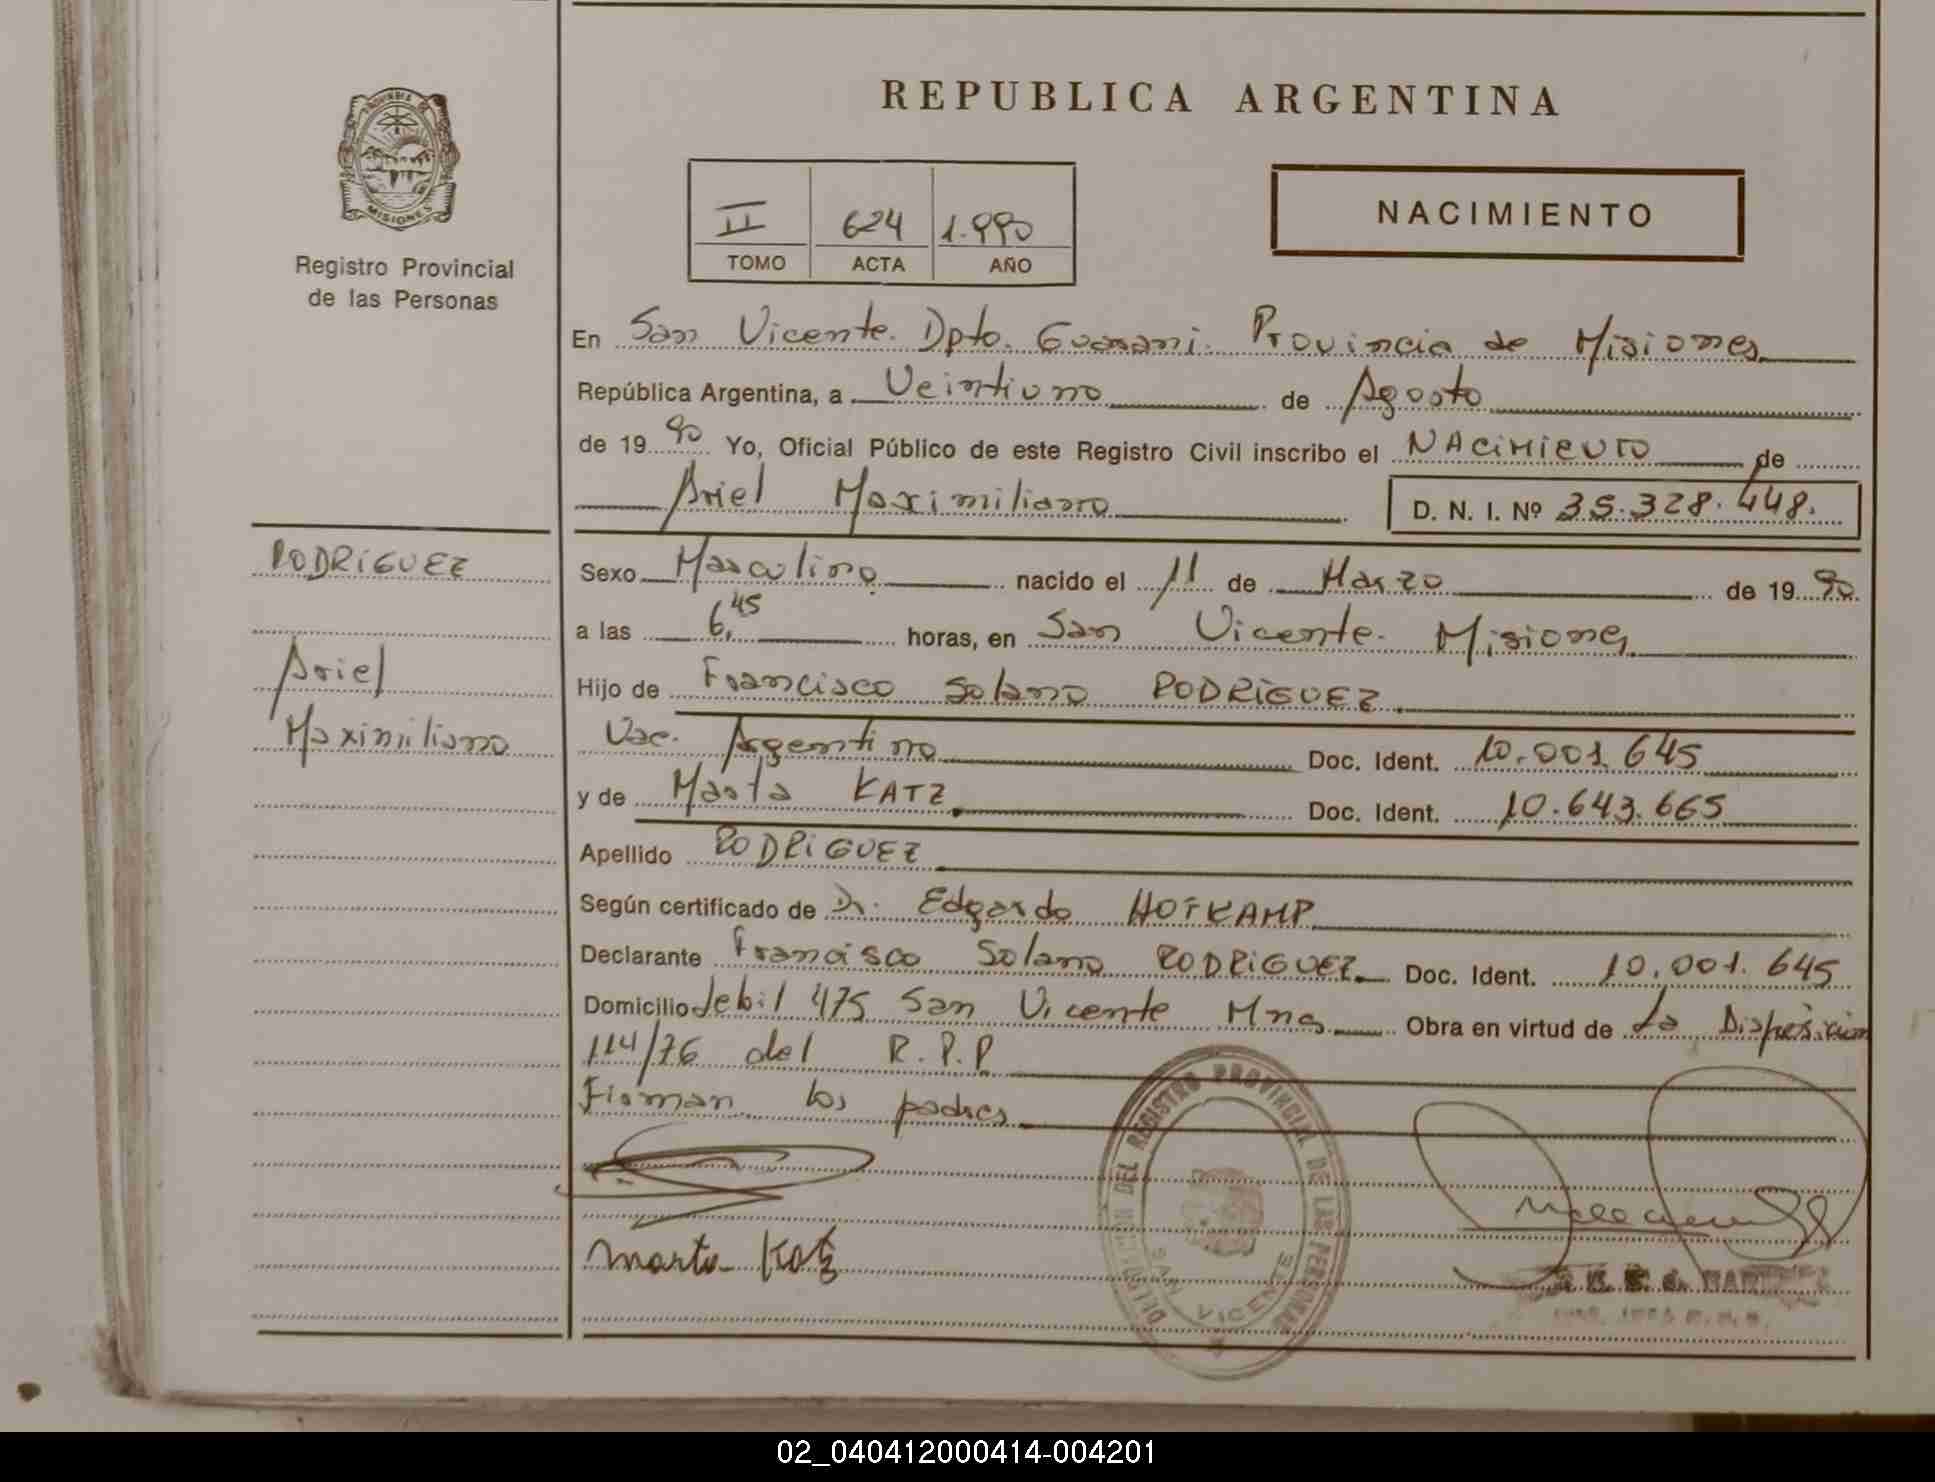 REPUBLICA ARGENTINA
PROVINCIA DE
MISIONES
Registro Provincial
de las Personas
II 624 1.990
TOMO ACTA AÑO
NACIMIENTO
En San Vicente. Dpto. Guarani. Provincia de Misiones
República Argentina, a Veintiuno de Agosto
de 1990 Yo, Oficial Público de este Registro Civil inscribo el NACIMIENTO de
Ariel Maximiliano D. N. I. Nº 35.328.448.
RODRIGUEZ
Ariel
Maximiliano
Sexo Masculino nacido el 11 de Marzo de 1990
a las 6,45 horas, en San Vicente. Misiones
Hijo de Francisco Solano RODRIGUEZ
Nac. Argentino Doc. Ident. 10.001.645
y de Marta KATZ Doc. Ident. 10.643.665
Apellido RODRIGUEZ
Según certificado de Dr. Edgardo HOFKAMP
Declarante Francisco Solano RODRIGUEZ Doc. Ident. 10.001.645
Domicilio 475 San Vicente Mnes Obra en virtud de La Disposicion
114/76 del R.P.P
Firman los padres
Marta Katz
DEL REGISTRO PROVINCIAL DE LAS PERSONAS
SAN VICENTE
02_040412000414-004201